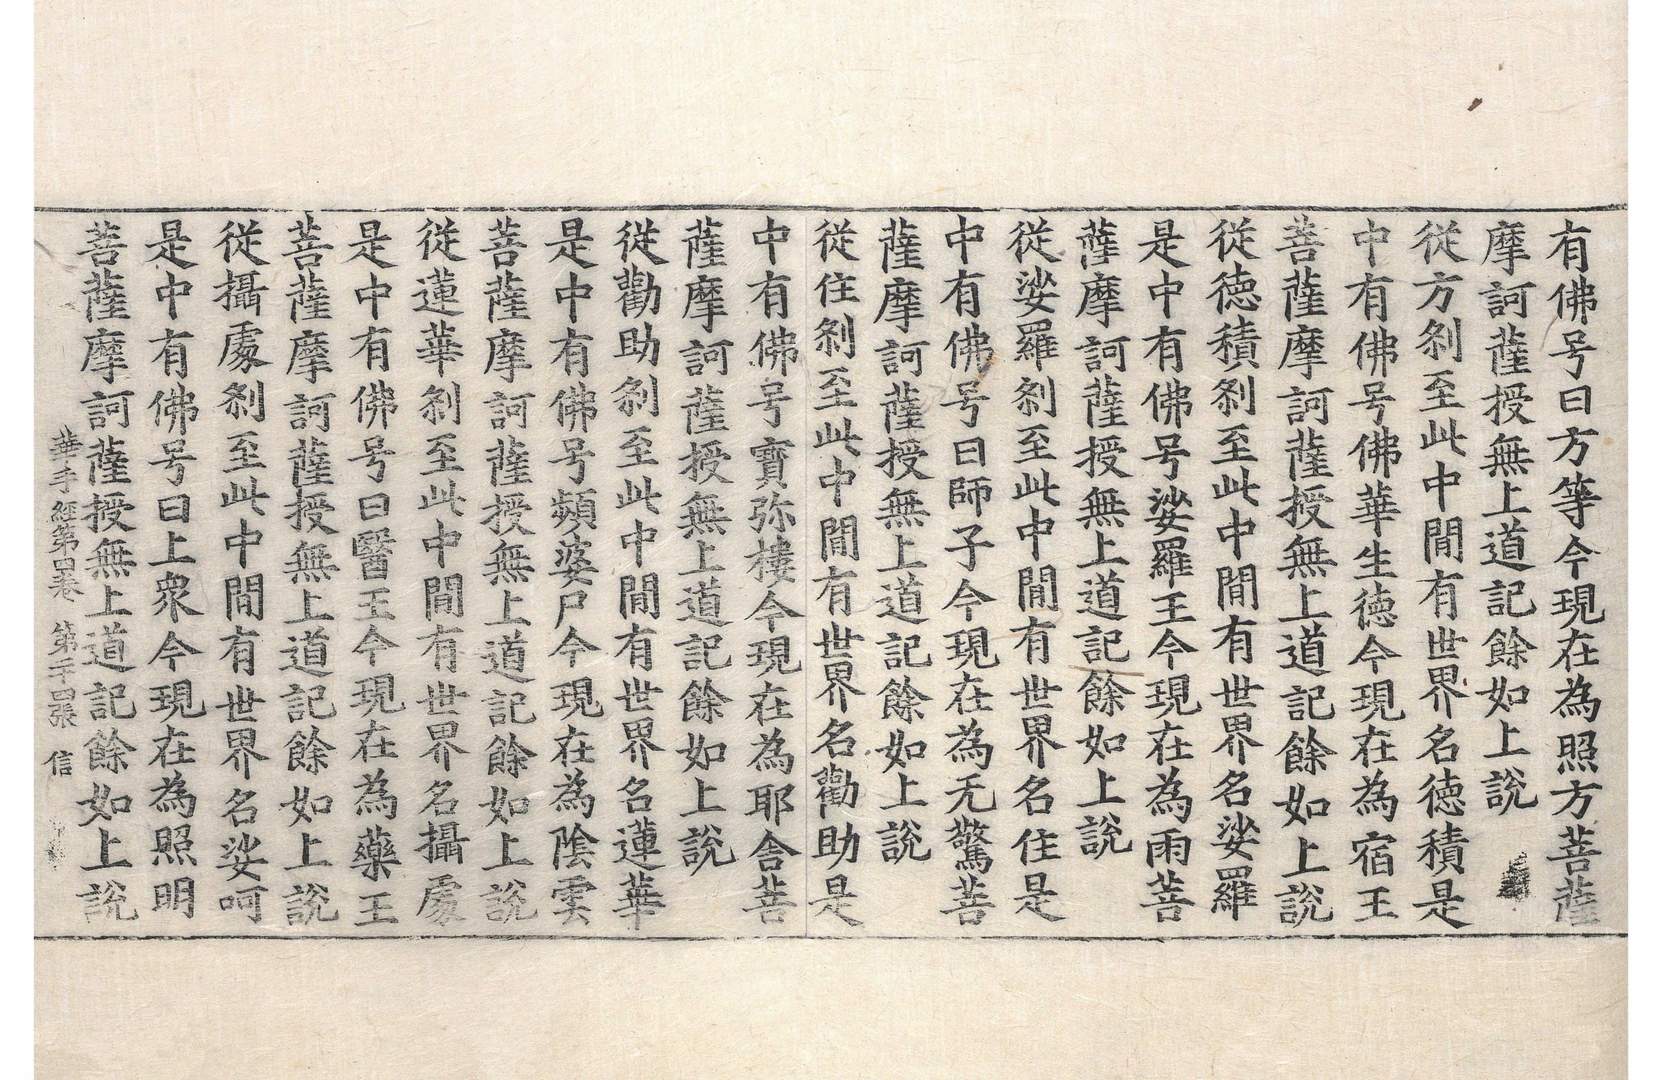 有佛号曰方等今現在為照方菩薩
摩訶薩授無上道記餘如上說
從方刹至此中間有世界名徳積是
中有佛号佛華生徳今現在為宿王
菩薩摩訶薩授無上道記餘如上說
從徳積刹至此中間有世界名娑羅
是中有佛号娑羅王今現在為雨菩
薩摩訶薩授無上道記餘如上說
從娑羅刹至此中間有世界名住是
中有佛号曰師子今現在為无驚菩
薩摩訶薩授無上道記餘如上說
從住刹至此中間有世界名勸助是
中有佛号寶弥樓今現在為耶舎菩
薩摩訶薩授無上道記餘如上說
從勸助刹至此中間有世界名蓮華
是中有佛号頻婆尸今現在為陰雲
菩薩摩訶薩授無上道記餘如上說
從蓮華刹至此中間有世界名攝處
是中有佛号曰醫王今現在為藥王
菩薩摩訶薩授無上道記餘如上說
從攝處刹至此中間有世界名娑呵
是中有佛号曰上衆今現在為照明
菩薩摩訶薩授無上道記餘如上說
華手經第四卷 第二十四張 信